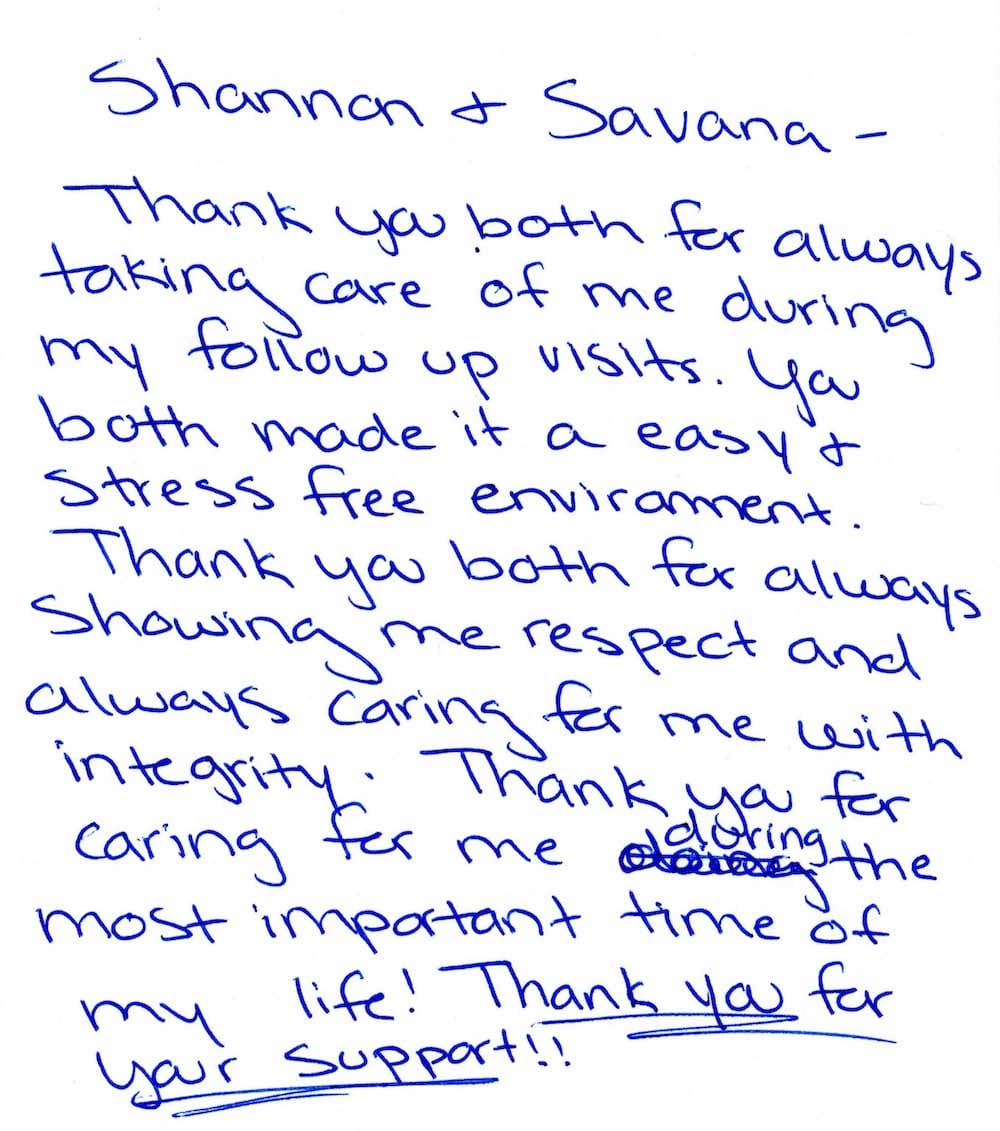 Shannon & Savana -
Thank you both for always
taking care of me during
my follow up visits. You
both made it a easy &
stress free environment.
Thank you both for always
showing me respect and
always caring for me with
integrity. Thank you for
caring for me during the
most important time of
my life! Thank you for
your support!!